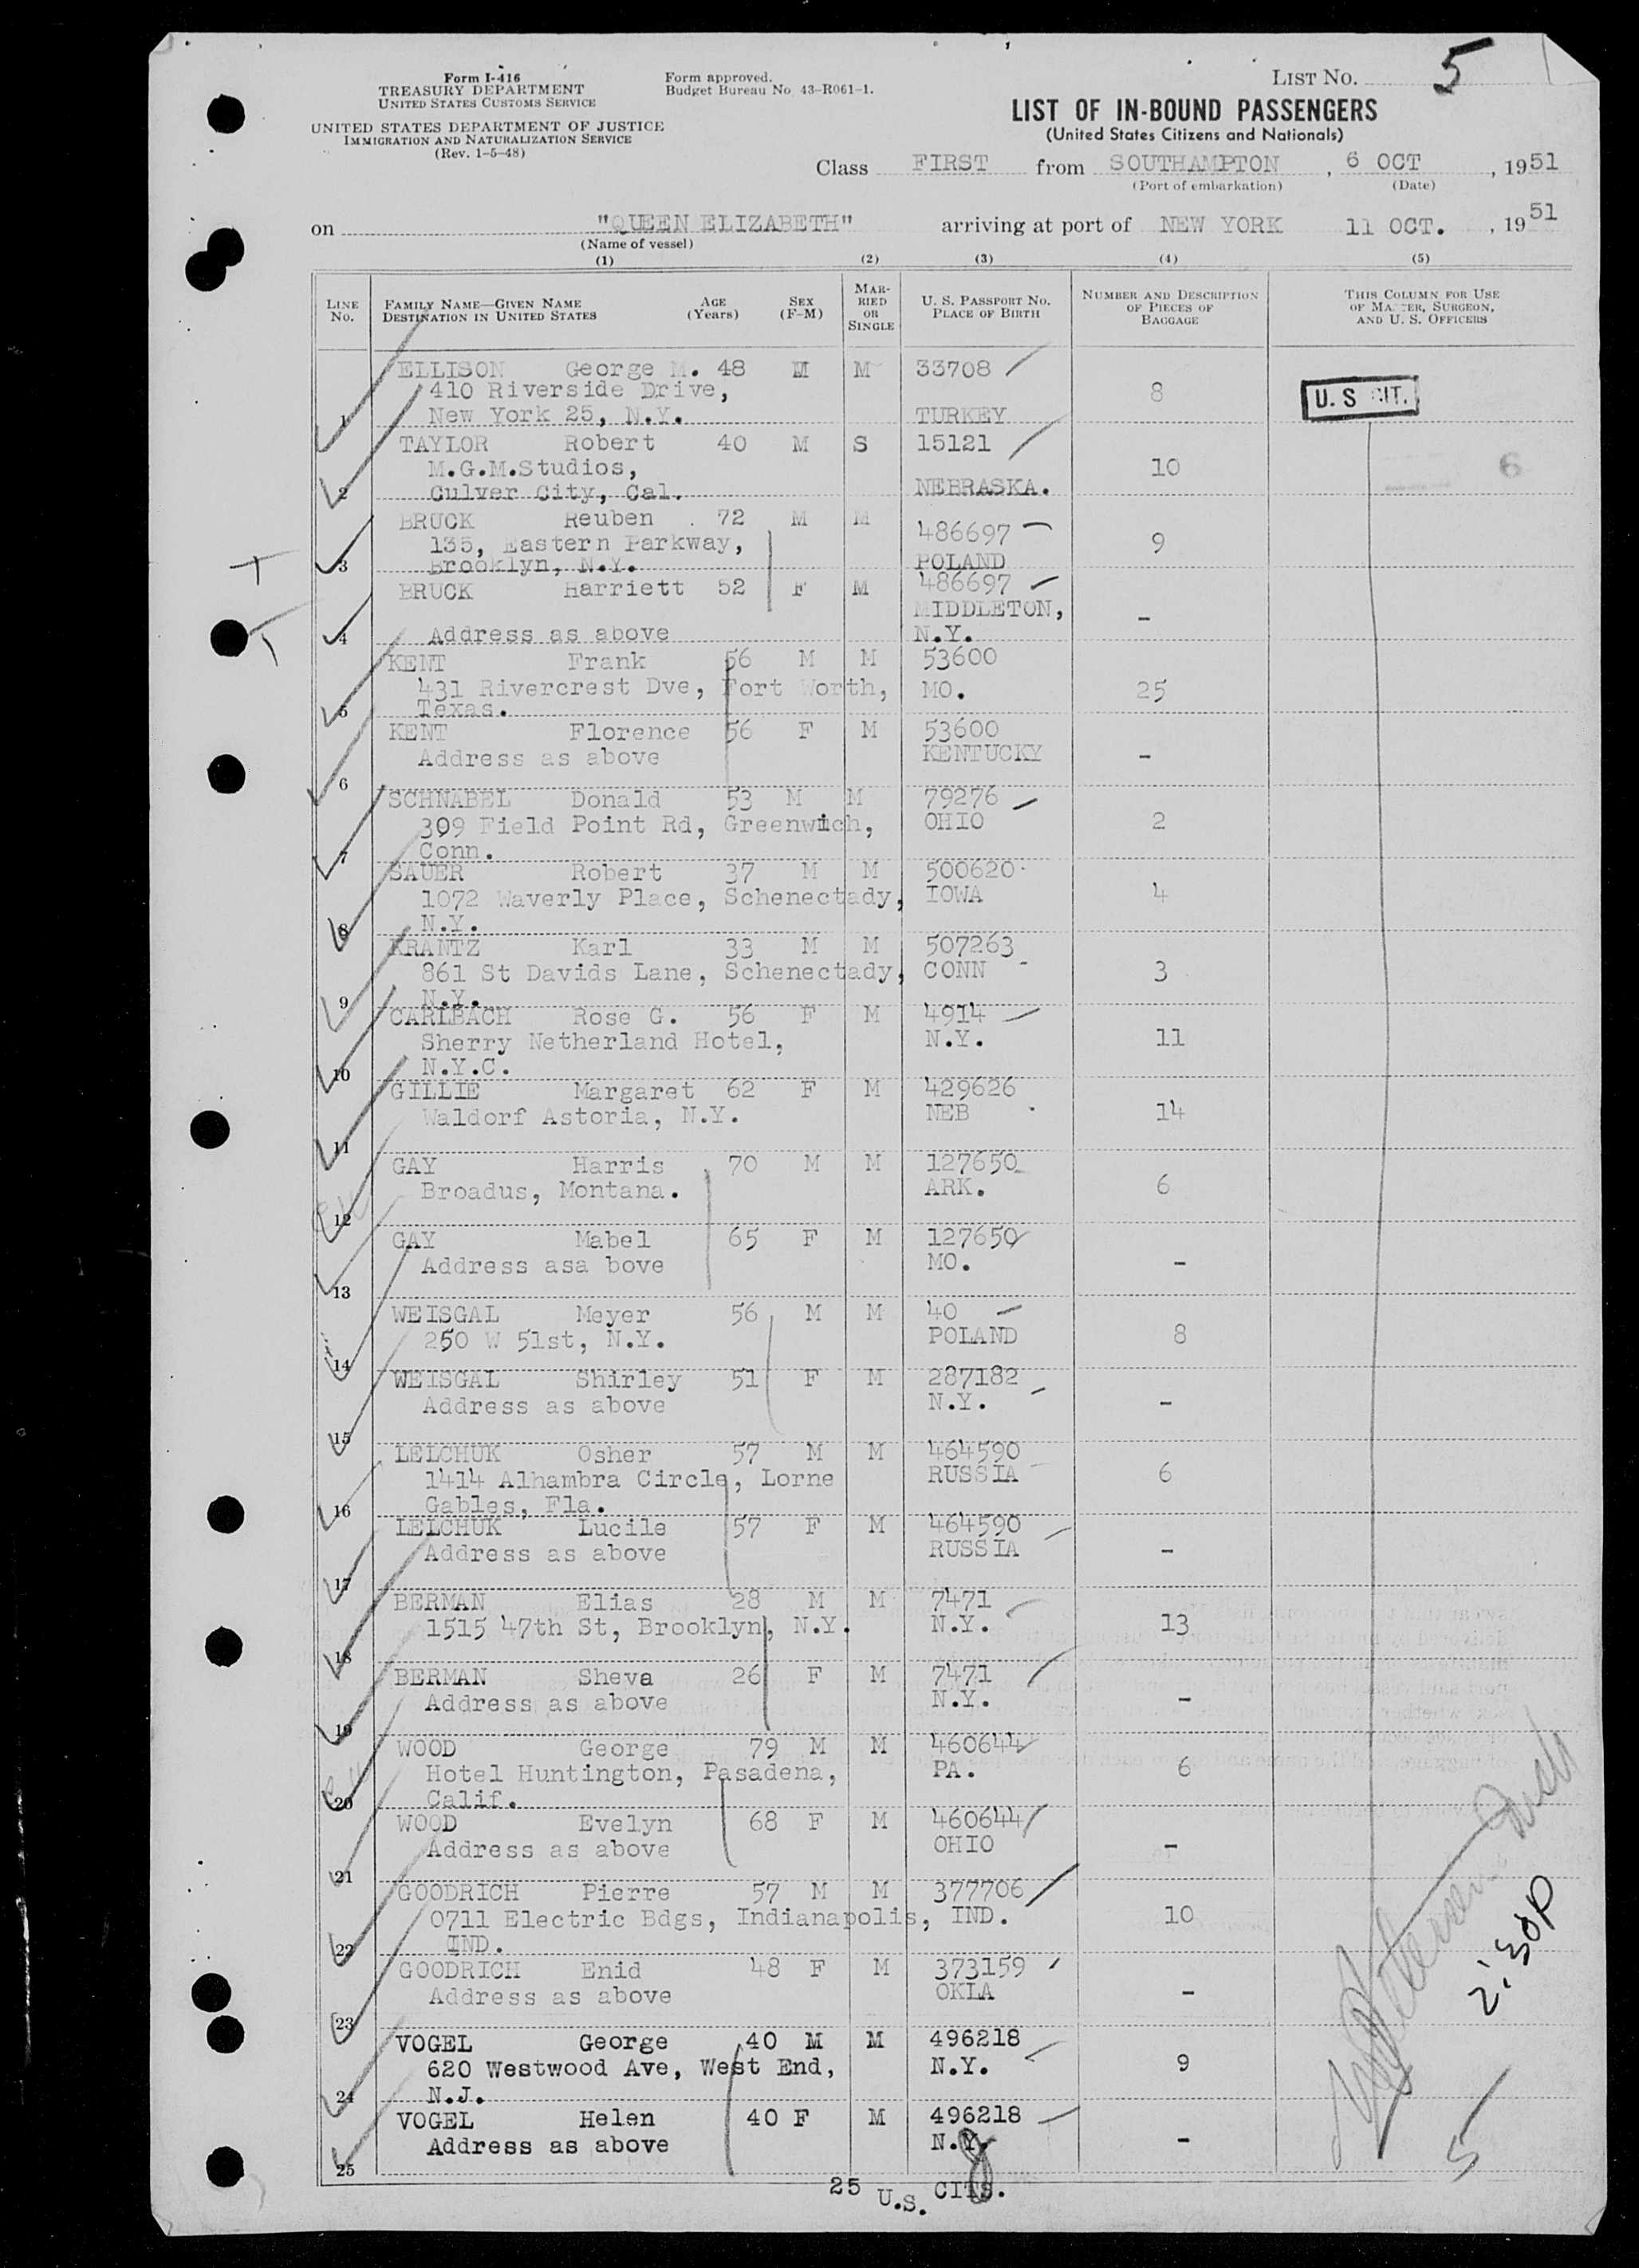 Form I-416
TREASURY DEPARTMENT
UNITED STATES CUSTOMS SERVICE
UNITED STATES DEPARTMENT OF JUSTICE
IMMIGRATION AND NATURALIZATION SERVICE
(Rev. 1-5-48)
Form approved.
Budget Bureau No. 43-R061-1.
LIST NO. 5
LIST OF IN-BOUND PASSENGERS
(United States Citizens and Nationals)
Class FIRST from SOUTHAMPTON, 6 OCT, 1951
(Port of embarkation) (Date)
on "QUEEN ELIZABETH" arriving at port of NEW YORK 11 OCT., 1951
(Name of vessel)
(1) (2) (3) (4) (5)
LINE NO. FAMILY NAME—GIVEN NAME DESTINATION IN UNITED STATES AGE (Years) SEX (F-M) MARRIED OR SINGLE U. S. PASSPORT NO. PLACE OF BIRTH NUMBER AND DESCRIPTION OF PIECES OF BAGGAGE THIS COLUMN FOR USE OF MASTER, SURGEON, AND U. S. OFFICERS
ELLISON George M. 48 M M 33708
410 Riverside Drive, 8 U. S CIT.
1 New York 25, N.Y. TURKEY
TAYLOR Robert 40 M S 15121
M.G.M.Studios, 10 6
2 Culver City, Cal. NEBRASKA.
BRUCK Reuben . 72 M M 486697
135, Eastern Parkway, 9
3 Brooklyn, N.Y. POLAND
BRUCK Harriett 52 F M 486697
MIDDLETON, -
4 Address as above N.Y.
KENT Frank 56 M M 53600
431 Rivercrest Dve, Fort Worth, MO. 25
5 Texas.
KENT Florence 56 F M 53600
Address as above KENTUCKY -
6
SCHNABEL Donald 53 M M 79276
309 Field Point Rd, Greenwich, OHIO 2
7 Conn.
SAUER Robert 37 M M 500620
1072 Waverly Place, Schenectady, IOWA 4
8 N.Y.
KRANTZ Karl 33 M M 507263
861 St Davids Lane, Schenectady, CONN 3
9 N.Y.
CARLBACH Rose G. 56 F M 4914
Sherry Netherland Hotel, N.Y. 11
10 N.Y.C.
GILLIE Margaret 62 F M 429626
Waldorf Astoria, N.Y. NEB 14
11
GAY Harris 70 M M 127650
Broadus, Montana. ARK. 6
12
GAY Mabel 65 F M 127650
Address asa bove MO. -
13
WEISGAL Meyer 56 M M 40
250 W 51st, N.Y. POLAND 8
14
WEISGAL Shirley 51 F M 287182
Address as above N.Y. -
15
LELCHUK Osher 57 M M 464590
1414 Alhambra Circle, Lorne RUSSIA 6
16 Gables, Fla.
LELCHUK Lucile 57 F M 464590
Address as above RUSSIA -
17
BERMAN Elias 28 M M 7471
1515 47th St, Brooklyn, N.Y. N.Y. 13
18
BERMAN Sheva 26 F M 7471
Address as above N.Y. -
19
WOOD George 79 M M 460644
Hotel Huntington, Pasadena, PA. 6
20 Calif.
WOOD Evelyn 68 F M 460644
Address as above OHIO -
21
GOODRICH Pierre 57 M M 377706
0711 Electric Bdgs, Indianapolis, IND. 10
22 IND.
GOODRICH Enid 48 F M 373159
Address as above OKLA -
23
VOGEL George 40 M M 496218
620 Westwood Ave, West End, N.Y. 9
24 N.J.
VOGEL Helen 40 F M 496218
Address as above N.Y. -
25
25 U.S. CITS.
2:30P
5